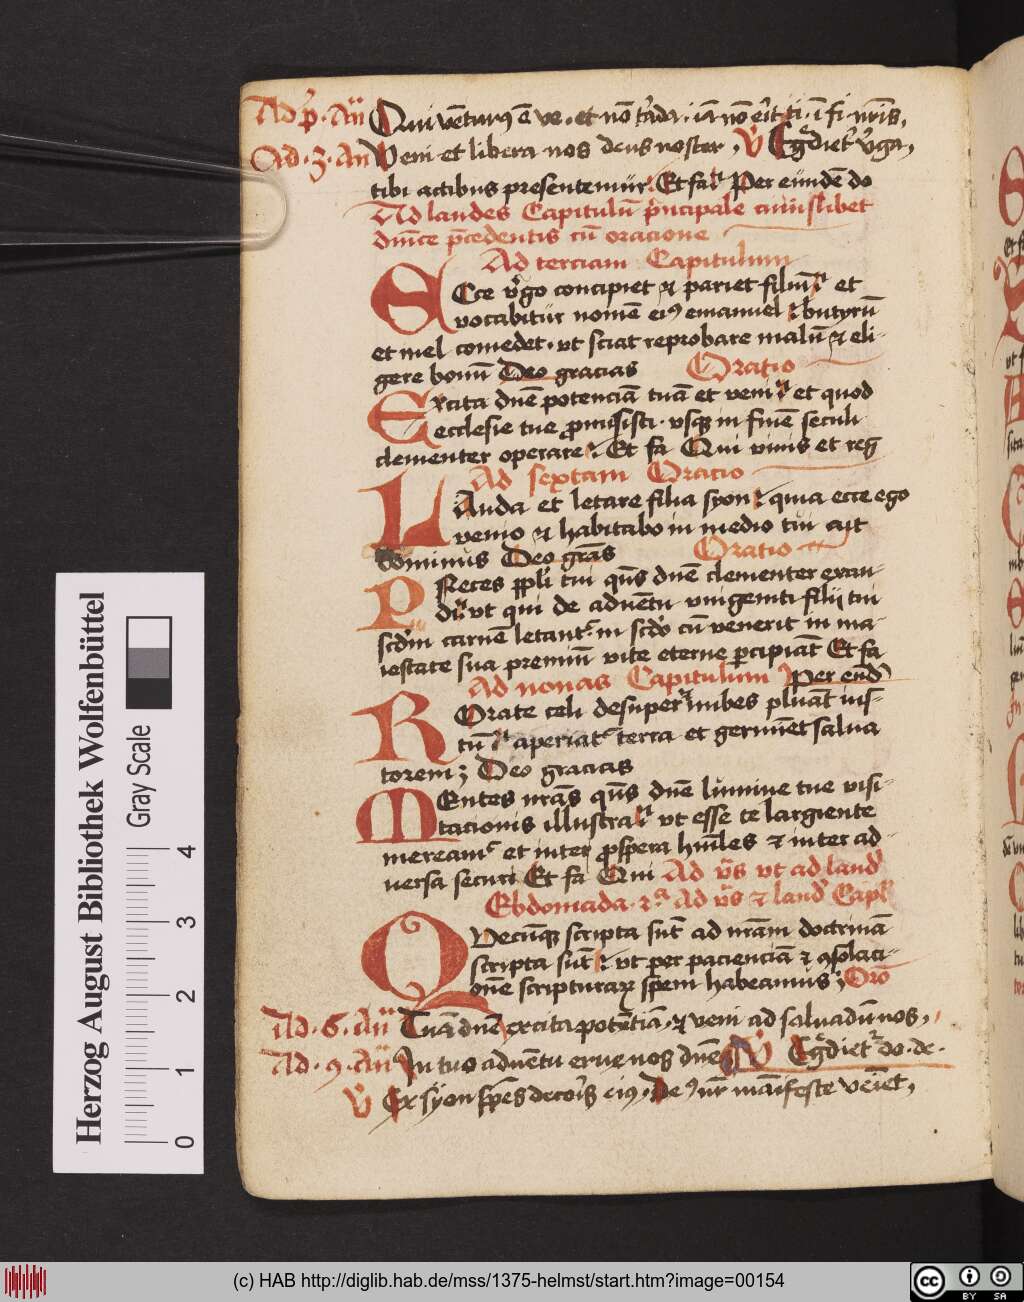 Ad p̄. Añ Qui vētur9 ē ve. et nō t̄rda. iā nō erit ti. ī fi. nr̄is.
Ad. 3. An Veni et libera nos deus noster, V̄ Egdiet v̄ga,
tibi actibus presentemur. Et fa Per eundē do
Ad laudes Capitulū p̄ncipale cuiuslibet
dn̄ice p̄cedentis cū oracione
Ad terciam Capitulum
ECce v̄go concipiet ⁊ pariet filiū et
vocabitur nomē ei9 emanuel butyrū
et mel comedet. vt sciat reprobare malū ⁊ eli-
gere bonū Deo gracias Oratio
Excita dn̄e potenciā tuā et veni et quod
ecclesie tue promisisti. vsq in finē seculi
clementer operare. Et fa Qui viuis et reg
Ad sextam Oratio
LAuda et letare filia syon quia ecce ego
venio ⁊ habitabo in medio tui ait
dominus Deo gr̄as Oratio
PReces ppli tui q̄s dn̄e clementer exau-
di vt qui de aduētu vnigeniti filii tui
scdm carnē letant in scdo cū venerit in ma-
iestate sua premiū vite eterne p̄cipiāt Et fa
Ad nonas Capitulum Per eund
ROrate celi desuper nubes pluāt ius-
tū aperiat terra et germiet salua
torem; Deo gracias
MEntes nr̄as q̄s dn̄e lumine tue visi-
tacionis illustra vt esse te largiente
mereamr et inter prospera hūiles ⁊ inter ad
uersa securi Et fa Qui Ad v̄s vt ad laud
Ebdomada. 2a Ad v̄s ⁊ laud Capl
QVecūq scripta sūt ad nr̄am doctrinā
scripta sūt. vt per pacienciā ⁊ 9solaci-
onē scripturaꝝ spem habeamus; Oro
Ad. 6. Añ Tuā dn̄e excita potētiā. ⁊ veni ad saluādū nos.
Ad. 9. Añ In tuo aduētu erue nos dn̄e V̄ Egdiet do. de.
V̄ Ex syon spēs decoris ei9. De9 nr̄ māifeste veiet,
Herzog August Bibliothek Wolfenbüttel
Gray Scale
0 1 2 3 4
(c) HAB http://diglib.hab.de/mss/1375-helmst/start.htm?image=00154
cc BY SA